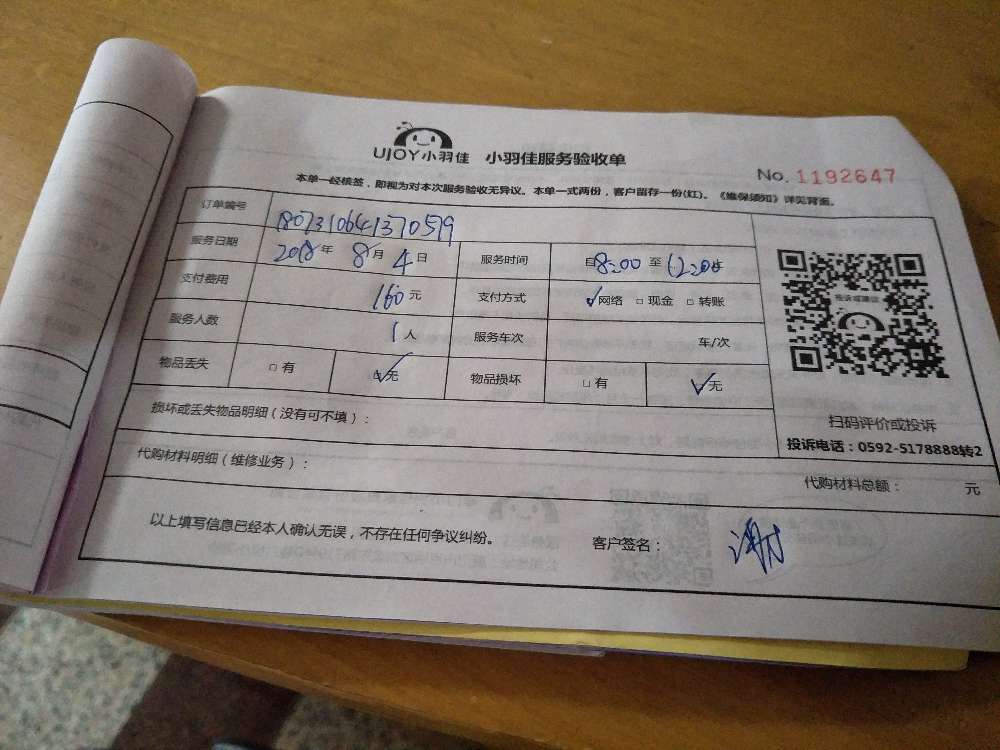 UJOY小羽佳 小羽佳服务验收单
No. 1192647
本单一经核签，即视为对本次服务验收无异议。本单一式两份，客户留存一份(红)。《维保须知》详见背面。
订单编号 1807310641370519
服务日期 2018年 8月 4日 服务时间 自8:00 至 12:00
支付费用 160元 支付方式 ✓网络 □现金 □转账
服务人数 1人 服务车次 车/次
物品丢失 □有 ✓无 物品损坏 □有 ✓无
投诉或建议
扫码评价或投诉
投诉电话：0592-5178888转2
损坏或丢失物品明细（没有可不填）：
代购材料明细（维修业务）： 代购材料总额： 元
以上填写信息已经本人确认无误，不存在任何争议纠纷。 客户签名：